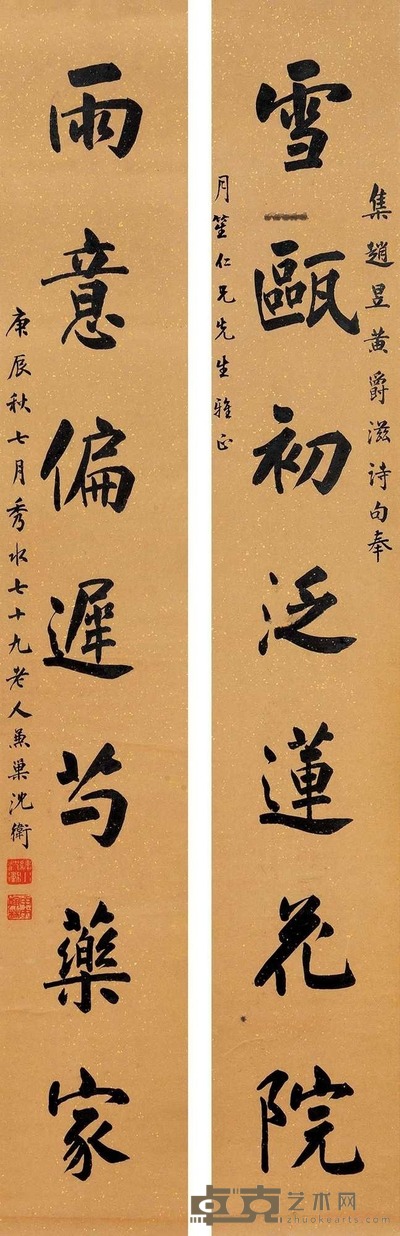 集趙昱黄爵滋詩句奉
雪甌初泛蓮花院
月笙仁兄先生雅正
雨意偏遲芍藥家
庚辰秋七月秀水七十九老人兼巢沈衛
卓克艺术网
zhuokearts.com